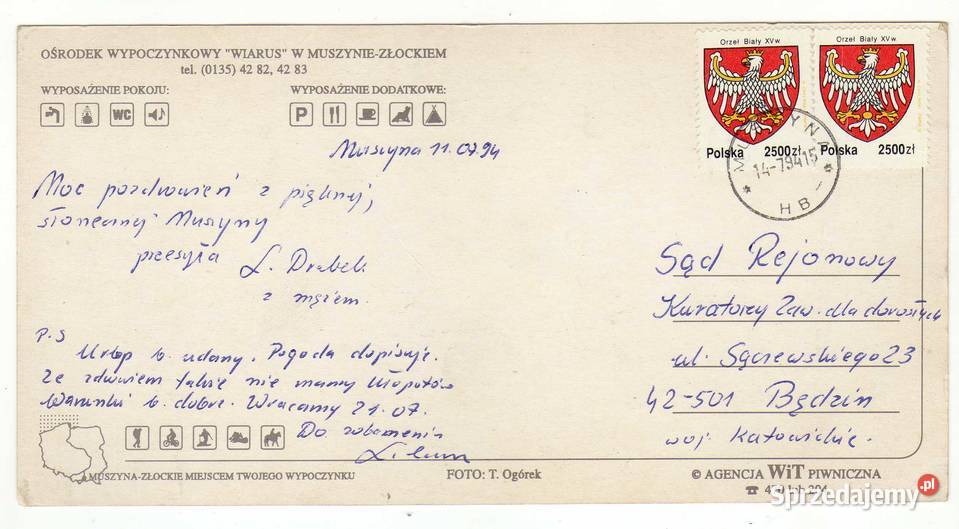 OŚRODEK WYPOCZYNKOWY "WIARUS" W MUSZYNIE-ZŁOCKIEM
tel. (0135) 42 82, 42 83
WYPOSAŻENIE POKOJU:
WYPOSAŻENIE DODATKOWE:
WC
P
Orzeł Biały XV w.
Polska 2500zł
Orzeł Biały XV w.
Polska 2500zł
MUSZYNA
14-7.94 15
HB
Muszyna 11.07.94
Moc pozdrowień z pięknej,
słonecznej Muszyny
przesyła
L. Drabek
z mężem.
P.S
Urlop b. udany. Pogoda dopisuje.
Ze zdrowiem także nie mamy kłopotów
Warunki b. dobre. Wracamy 21.07.
Do zobaczenia
Sąd Rejonowy
Kuratorzy Zaw. dla dorosłych
ul. Sączewskiego 23
42-501 Będzin
woj. Katowickie.
MUSZYNA-ZŁOCKIE MIEJSCEM TWOJEGO WYPOCZYNKU
FOTO: T. Ogórek
© AGENCJA WiT PIWNICZNA
Sprzedajemy.pl